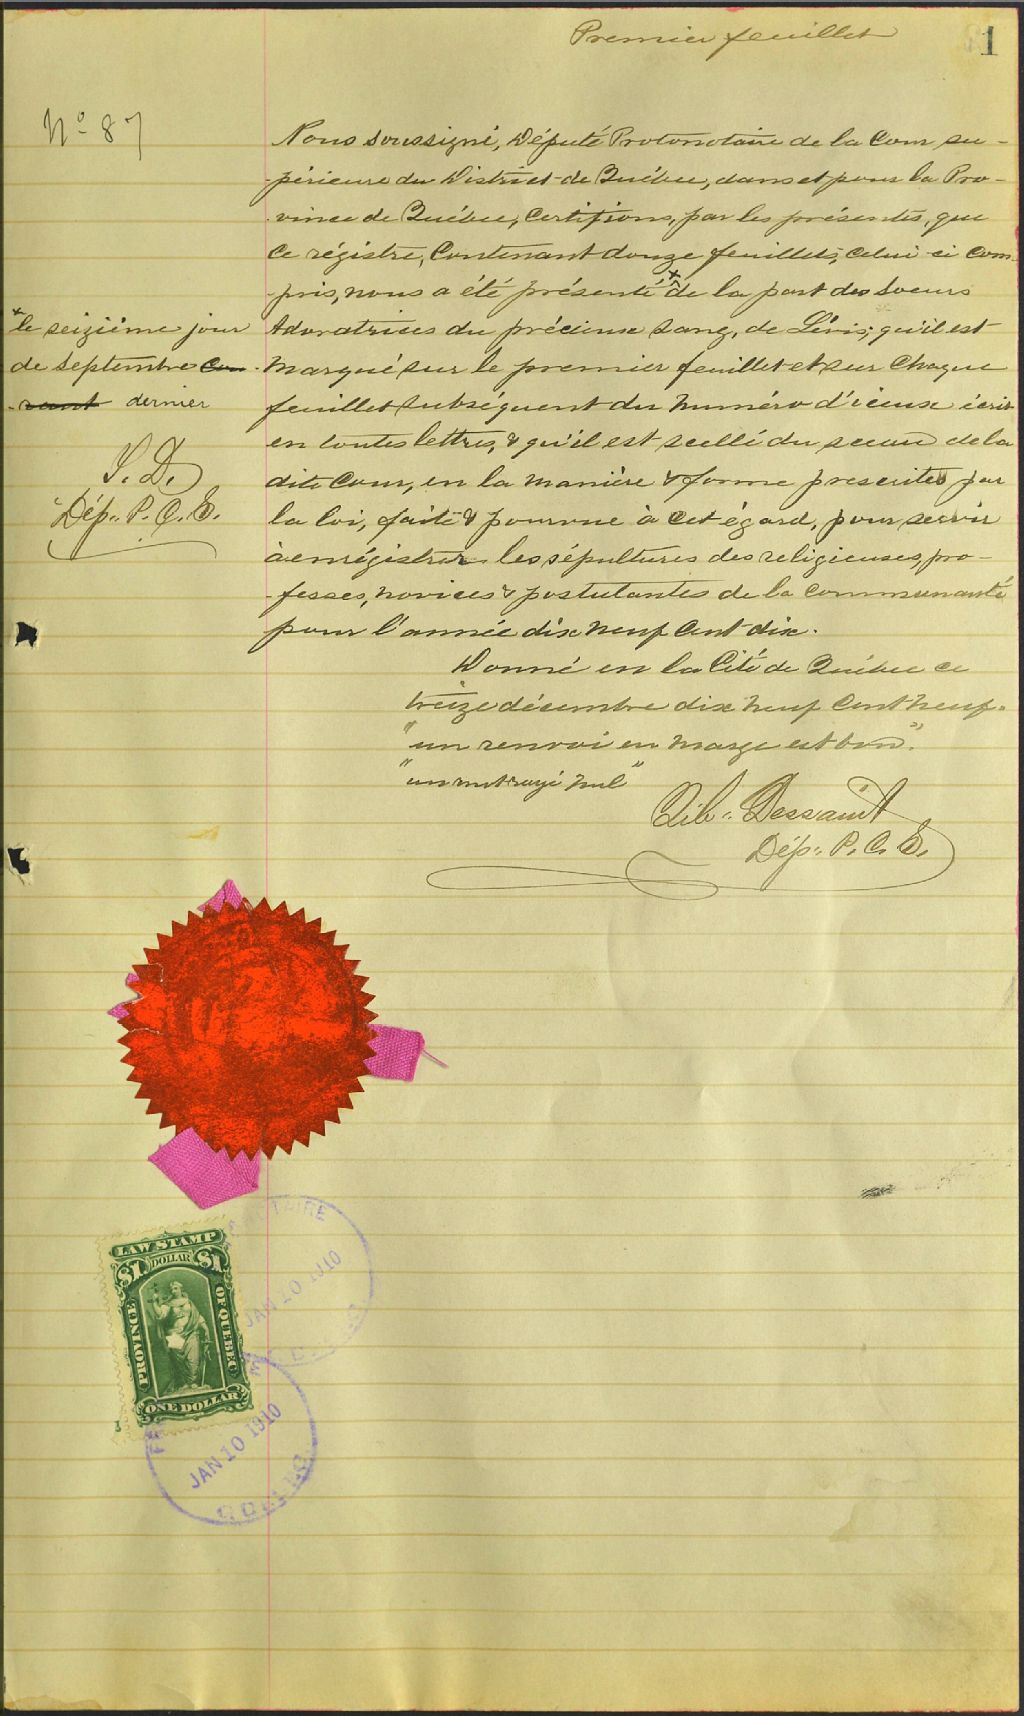 Premier feuillet
1
No 87
Nous soussigné, Député Protonotaire de la Cour su-
-périeure du District de Québec, dans et pour la Pro-
-vince de Québec, certifions, par les présentes, que
ce régistre, contenant douze feuillets, celui-ci com-
-pris, nous a été présenté x de la part des Soeurs
Adoratrices du précieux sang, de Lévis; qu'il est
marqué sur le premier feuillet et sur chaque
feuillet subséquent du numéro d'iceux écrit
en toutes lettres, & qu'il est scellé du sceau de la
dite Cour, en la manière & forme prescrites par
la loi, faite & pourvue à cet égard, pour servir
à enrégistrer les sépultures des religieuses, pro-
-fesses, novices & postulantes de la Communauté
pour l'année dix neuf cent dix.
Donné en la Cité de Québec ce
treize décembre dix neuf cent neuf.
"un renvoi en marge est bon".
"un mot rayé nul"
Dessault
Dép. P. C. S.
x le seizième jour
de septembre cou-
-rant dernier
Dép. P. C. S.
LAW STAMP
$1 DOLLAR $1
PROVINCE
OF QUEBEC
ONE DOLLAR
JAN 10 1910
JAN 10 1910